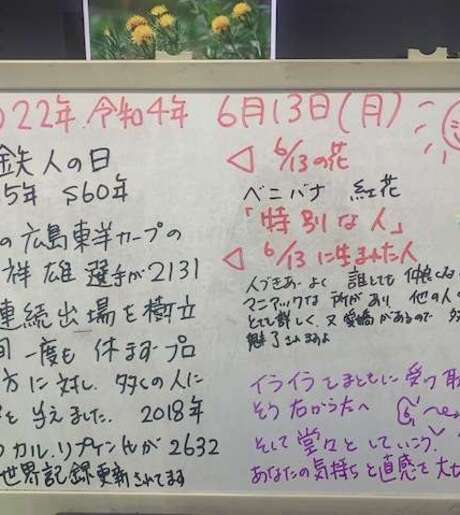 022年.令和4年 6月13日(月)
鉄人の日
5年 S60年
の広島東洋カープの
祥雄選手が2131
連続出場を樹立
一度も休まずプロ
方に対し、多くの人に
を与えました. 2018年
カル.リプケン氏が2632
世界記録更新されてます
◁ 6/13の花
ベニバナ 紅花
「特別な人」
◁ 6/13に生まれた人
人づきあいよく 誰とでも仲良くなる
マニアックな所があり、他の人の
とても詳しく、又愛嬌があるので
魅了されますよ
イライラをまともに受け取
そう右から左へ
そして堂々としていこう.
あなたの気持ちと直感を大せ